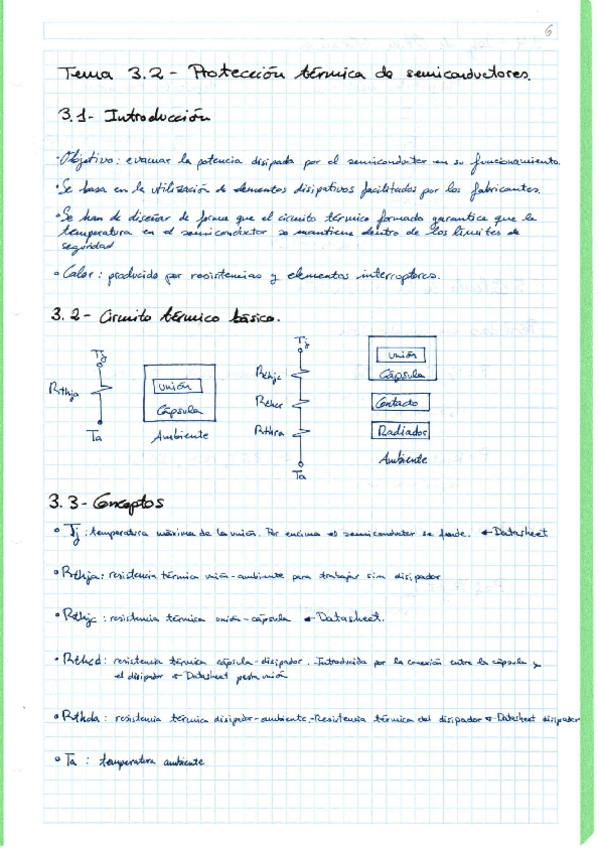 6
Tema 3.2 - Protección térmica de semiconductores.
3.1- Introducción
• Objetivo: evacuar la potencia disipada por el semiconductor en su funcionamiento.
• Se basa en la utilización de elementos disipativos facilitados por los fabricantes.
• Se han de diseñar de forma que el circuito térmico formado garantice que la
temperatura en el semiconductor se mantiene dentro de los límites de
seguridad
• Calor: producido por resistencias y elementos interruptores.
3.2- Circuito térmico básico.
Tj
Rthja
Ta
Unión
Cápsula
Ambiente
Tj
Rthjc
Rthcr
Rthra
Ta
Unión
Cápsula
Contacto
Radiador
Ambiente
3.3- Conceptos
• Tj: temperatura máxima de la unión. Por encima el semiconductor se funde. ← Datasheet
• Rthja: resistencia térmica unión-ambiente para trabajar sin disipador
• Rthjc: resistencia térmica unión-cápsula ← Datasheet.
• Rthcd: resistencia térmica cápsula-disipador. Introducida por la conexión entre la cápsula y
el disipador ← Datasheet unión
• Rthda: resistencia térmica disipador-ambiente.-Resistencia térmica del disipador ← Datasheet disipador
• Ta: temperatura ambiente